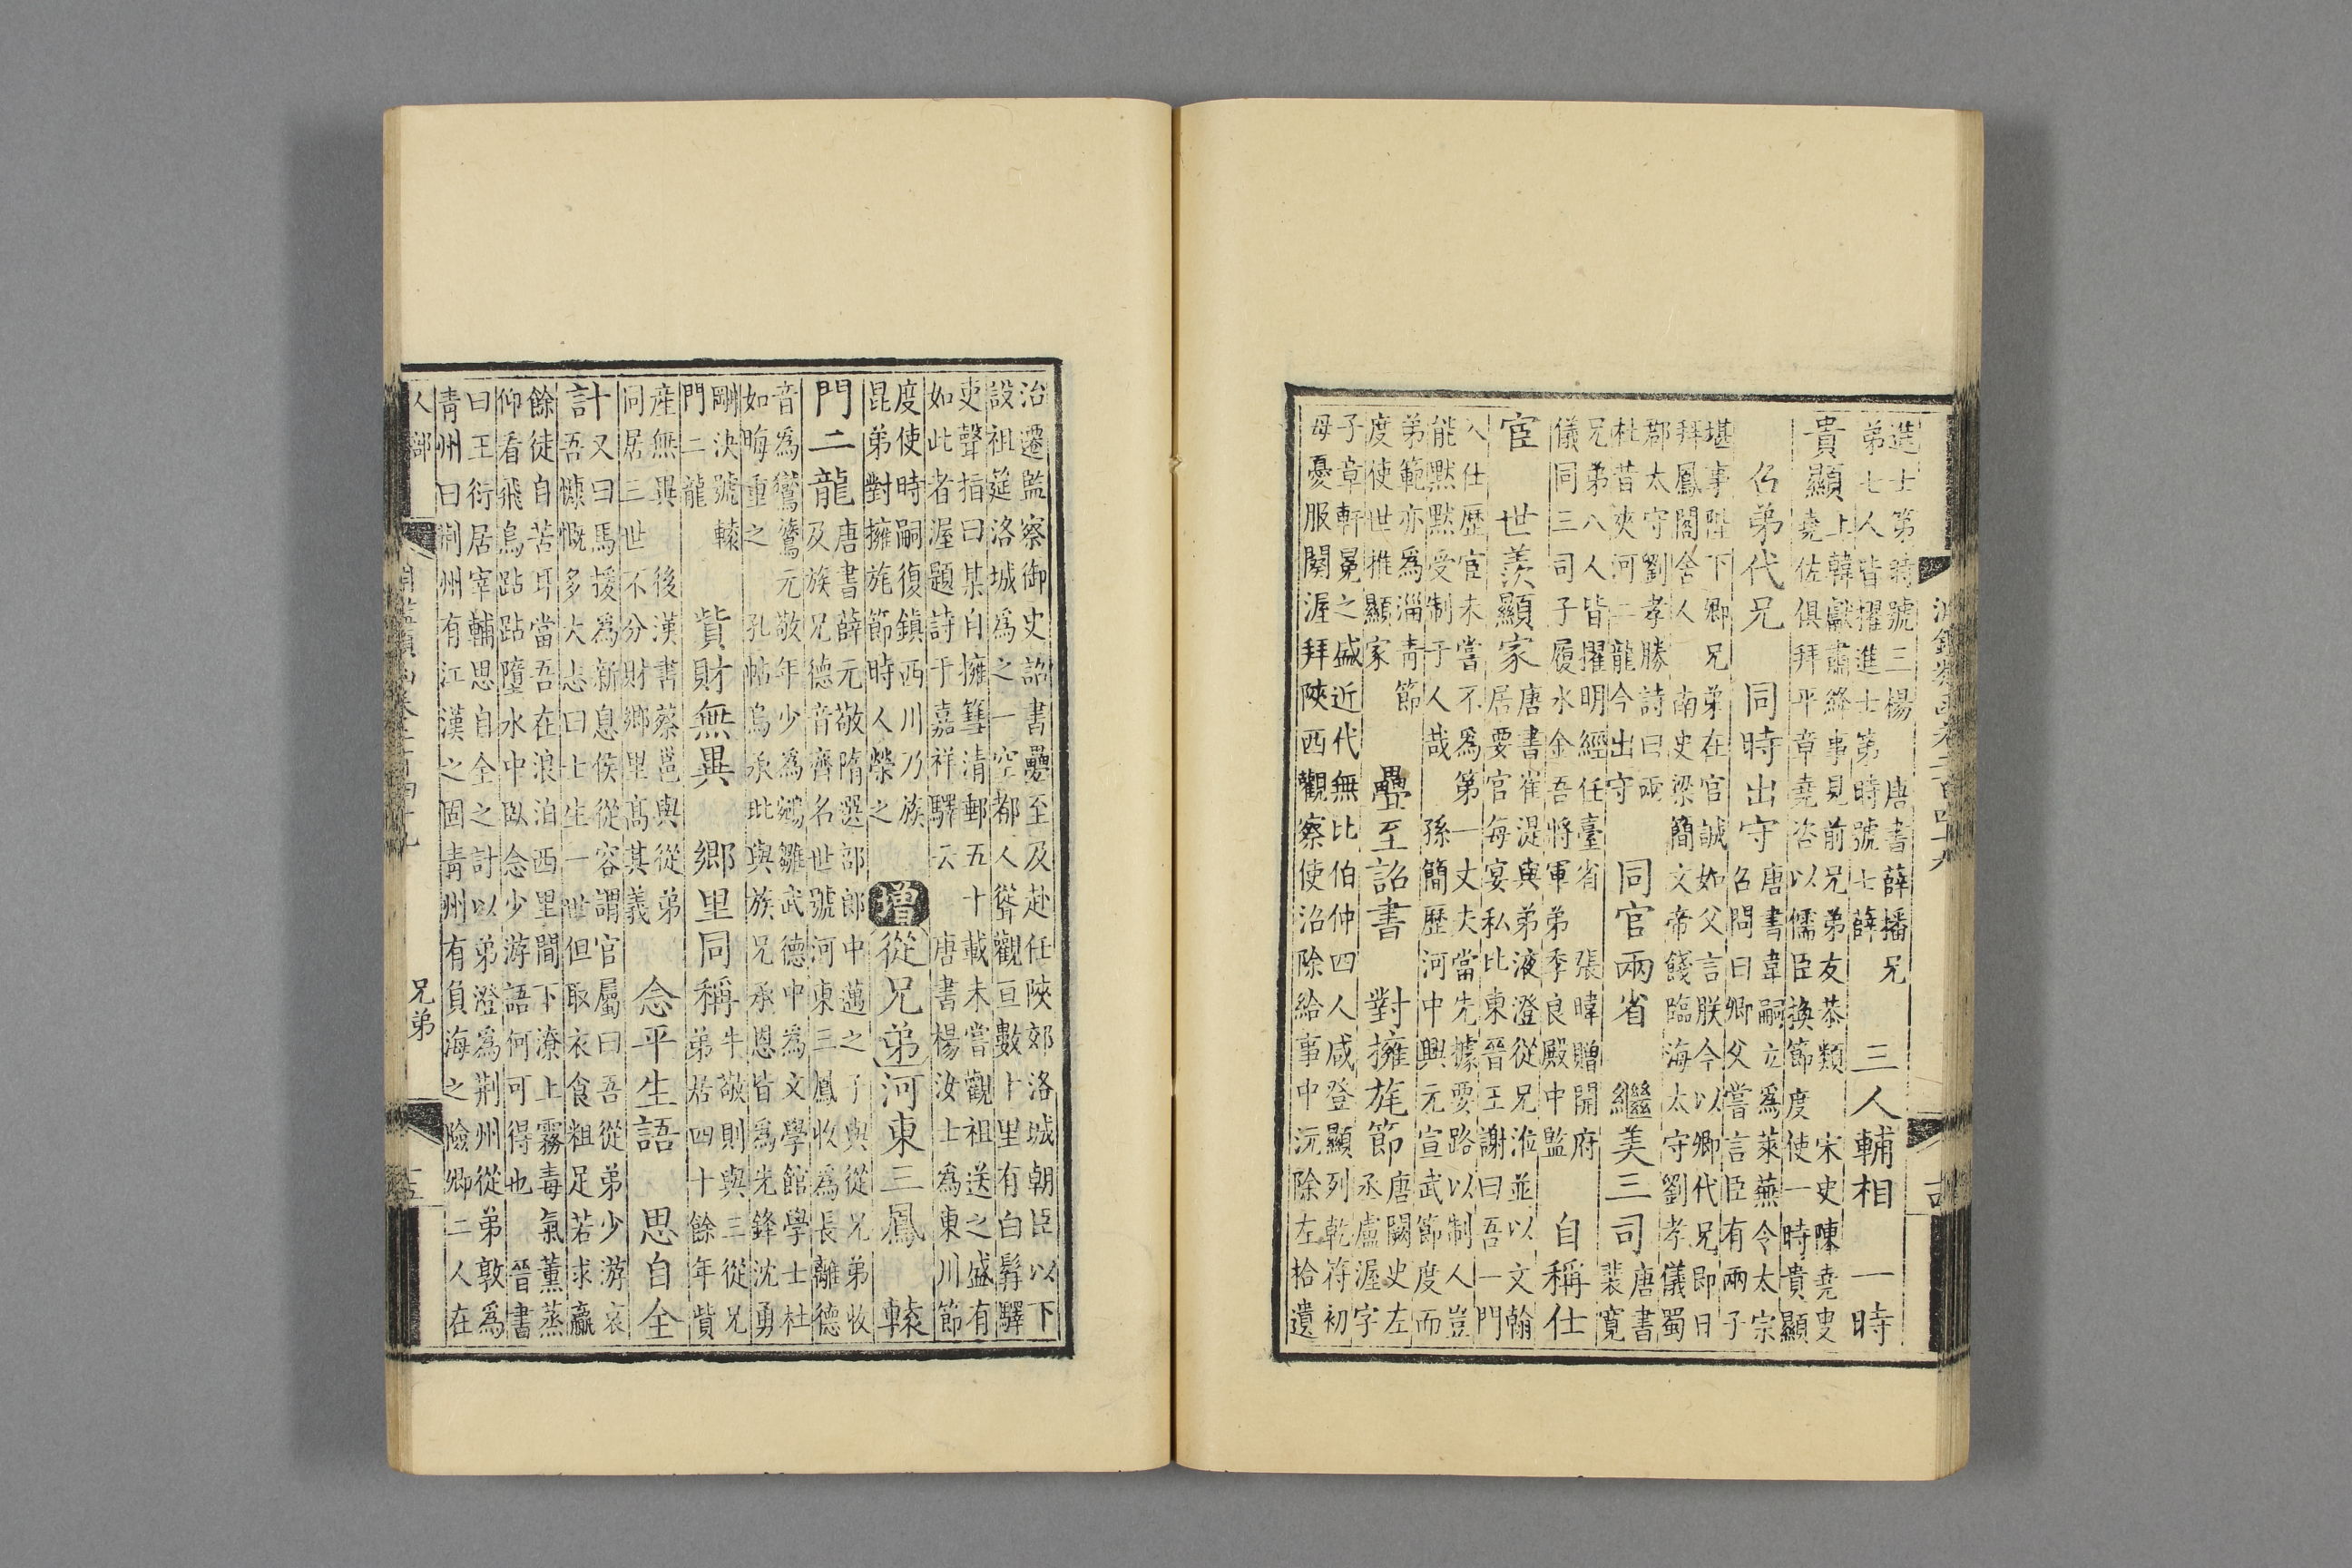 淵鑑類函卷二百四十九
進士第時號三楊 唐書薛播兄
弟七人皆擢進士第時號士薛 三人輔相 一時
貴顯 上韓獻肅絳事見前兄弟友恭類 宋史陳堯叟
堯佐俱拜平章堯咨以儒臣換節度使一時貴顯
召弟代兄 同時出守 唐書韋嗣立爲萊蕪令太宗
召問曰卿父嘗言臣有兩子
堪事陛下卿兄弟在官誠如父言朕今以卿代兄即日
拜鳳閣舍人 南史梁簡文帝餞臨海太守劉孝儀蜀
郡太守劉孝勝詩曰兩
杜昔夾河二龍今出守 同官兩省 繼美三司 唐書
裴寬
兄弟八人皆擢明經任臺省 張暐贈開府
儀同三司子履水金吾將軍弟季良殿中監 自稱仕
宦 世羨顯家 唐書崔湜與弟液澄從兄涖並以文翰
居要官每宴私比東晉王謝曰吾一門
入仕歷官未嘗不爲第一丈夫當先據要路以制人豈
能默默受制于人哉 孫簡歷河中興元宣武節度而
弟範亦爲淄青節
度使世推顯家 疊至詔書 對擁旄節 唐闕史左
丞盧渥字
子章軒冕之盛近代無比伯仲四人咸登顯列乾符初
母憂服闋渥拜陝西觀察使沼除給事中沆除左拾遺
治遷監察御史詔書疊至及赴任陝郊洛城朝臣以下
設祖筵洛城爲之一空都人聳觀亘數十里有白髯驛
吏聲指曰某自擁篲清郵五十載未嘗觀祖送之盛有
如此者渥題詩于嘉祥驛云 唐書楊汝士爲東川節
度使時嗣復鎮西川乃族
昆弟對擁旄節時人榮之 增 從兄弟 河東三鳳 轅
門二龍 唐書薛元敬隋選部郎中邁之子與從兄弟收
及族兄德音齊名世號河東三鳳收爲長離德
音爲鸑鷟元敬年少爲鵷雛武德中爲文學館學士杜
如晦重之 孔帖烏承玭與族兄承恩皆爲先鋒沈勇
剛決號轅
門二龍 貲財無異 鄉里同稱 牛敬則與三從兄
弟居四十餘年貲
産無異 後漢書蔡邕與從弟
同居三世不分財鄉里高其義 念平生語 思自全
計 又曰馬援爲新息侯從容謂官屬曰吾從弟少游哀
吾慷慨多大志曰士生一世但取衣食粗足若求贏
餘徒自苦耳當吾在浪泊西里間下潦上霧毒氣薰蒸
仰看飛鳥跕跕墮水中臥念少游語何可得也 晉書
曰王衍居宰輔思自全之計以弟澄爲荆州從弟敦爲
青州曰荆州有江漢之固青州有負海之險卿二人在
人部 兄弟